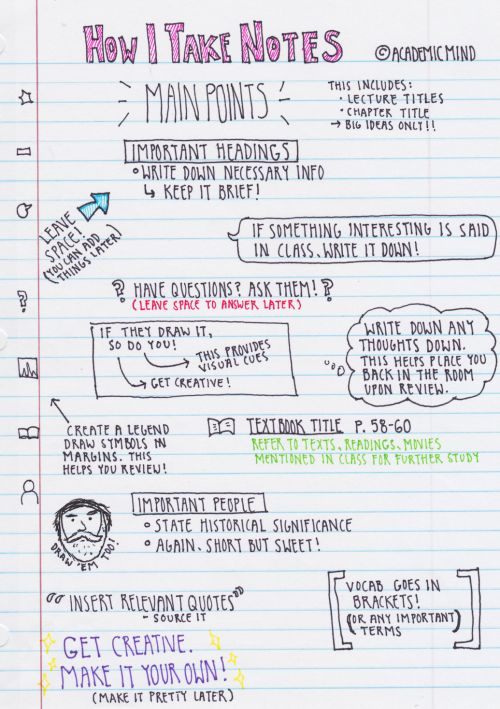 HOW I TAKE NOTES
©ACADEMICMIND
MAIN POINTS
THIS INCLUDES:
• LECTURE TITLES
• CHAPTER TITLE
→ BIG IDEAS ONLY!!
IMPORTANT HEADINGS
• WRITE DOWN NECESSARY INFO
↳ KEEP IT BRIEF!
LEAVE
SPACE!
(YOU CAN ADD
THINGS LATER)
IF SOMETHING INTERESTING IS SAID
IN CLASS, WRITE IT DOWN!
? HAVE QUESTIONS? ASK THEM! ?
(LEAVE SPACE TO ANSWER LATER)
?
IF THEY DRAW IT,
SO DO YOU!
THIS PROVIDES
VISUAL CUES
GET CREATIVE!
WRITE DOWN ANY
THOUGHTS DOWN.
THIS HELPS PLACE YOU
BACK IN THE ROOM
UPON REVIEW.
CREATE A LEGEND
DRAW SYMBOLS IN
MARGINS. THIS
HELPS YOU REVIEW!
TEXTBOOK TITLE P. 58-60
REFER TO TEXTS, READINGS, MOVIES
MENTIONED IN CLASS FOR FURTHER STUDY
IMPORTANT PEOPLE
• STATE HISTORICAL SIGNIFICANCE
• AGAIN, SHORT BUT SWEET!
DRAW 'EM TOO!
"INSERT RELEVANT QUOTES"
- SOURCE IT
[VOCAB GOES IN
BRACKETS!
(OR ANY IMPORTANT)
TERMS]
GET CREATIVE.
MAKE IT YOUR OWN!
(MAKE IT PRETTY LATER)